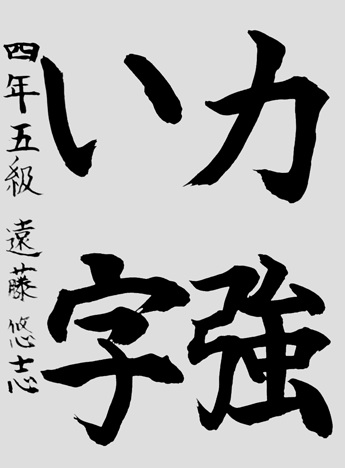 力強
い字
四年五級 遠藤悠志